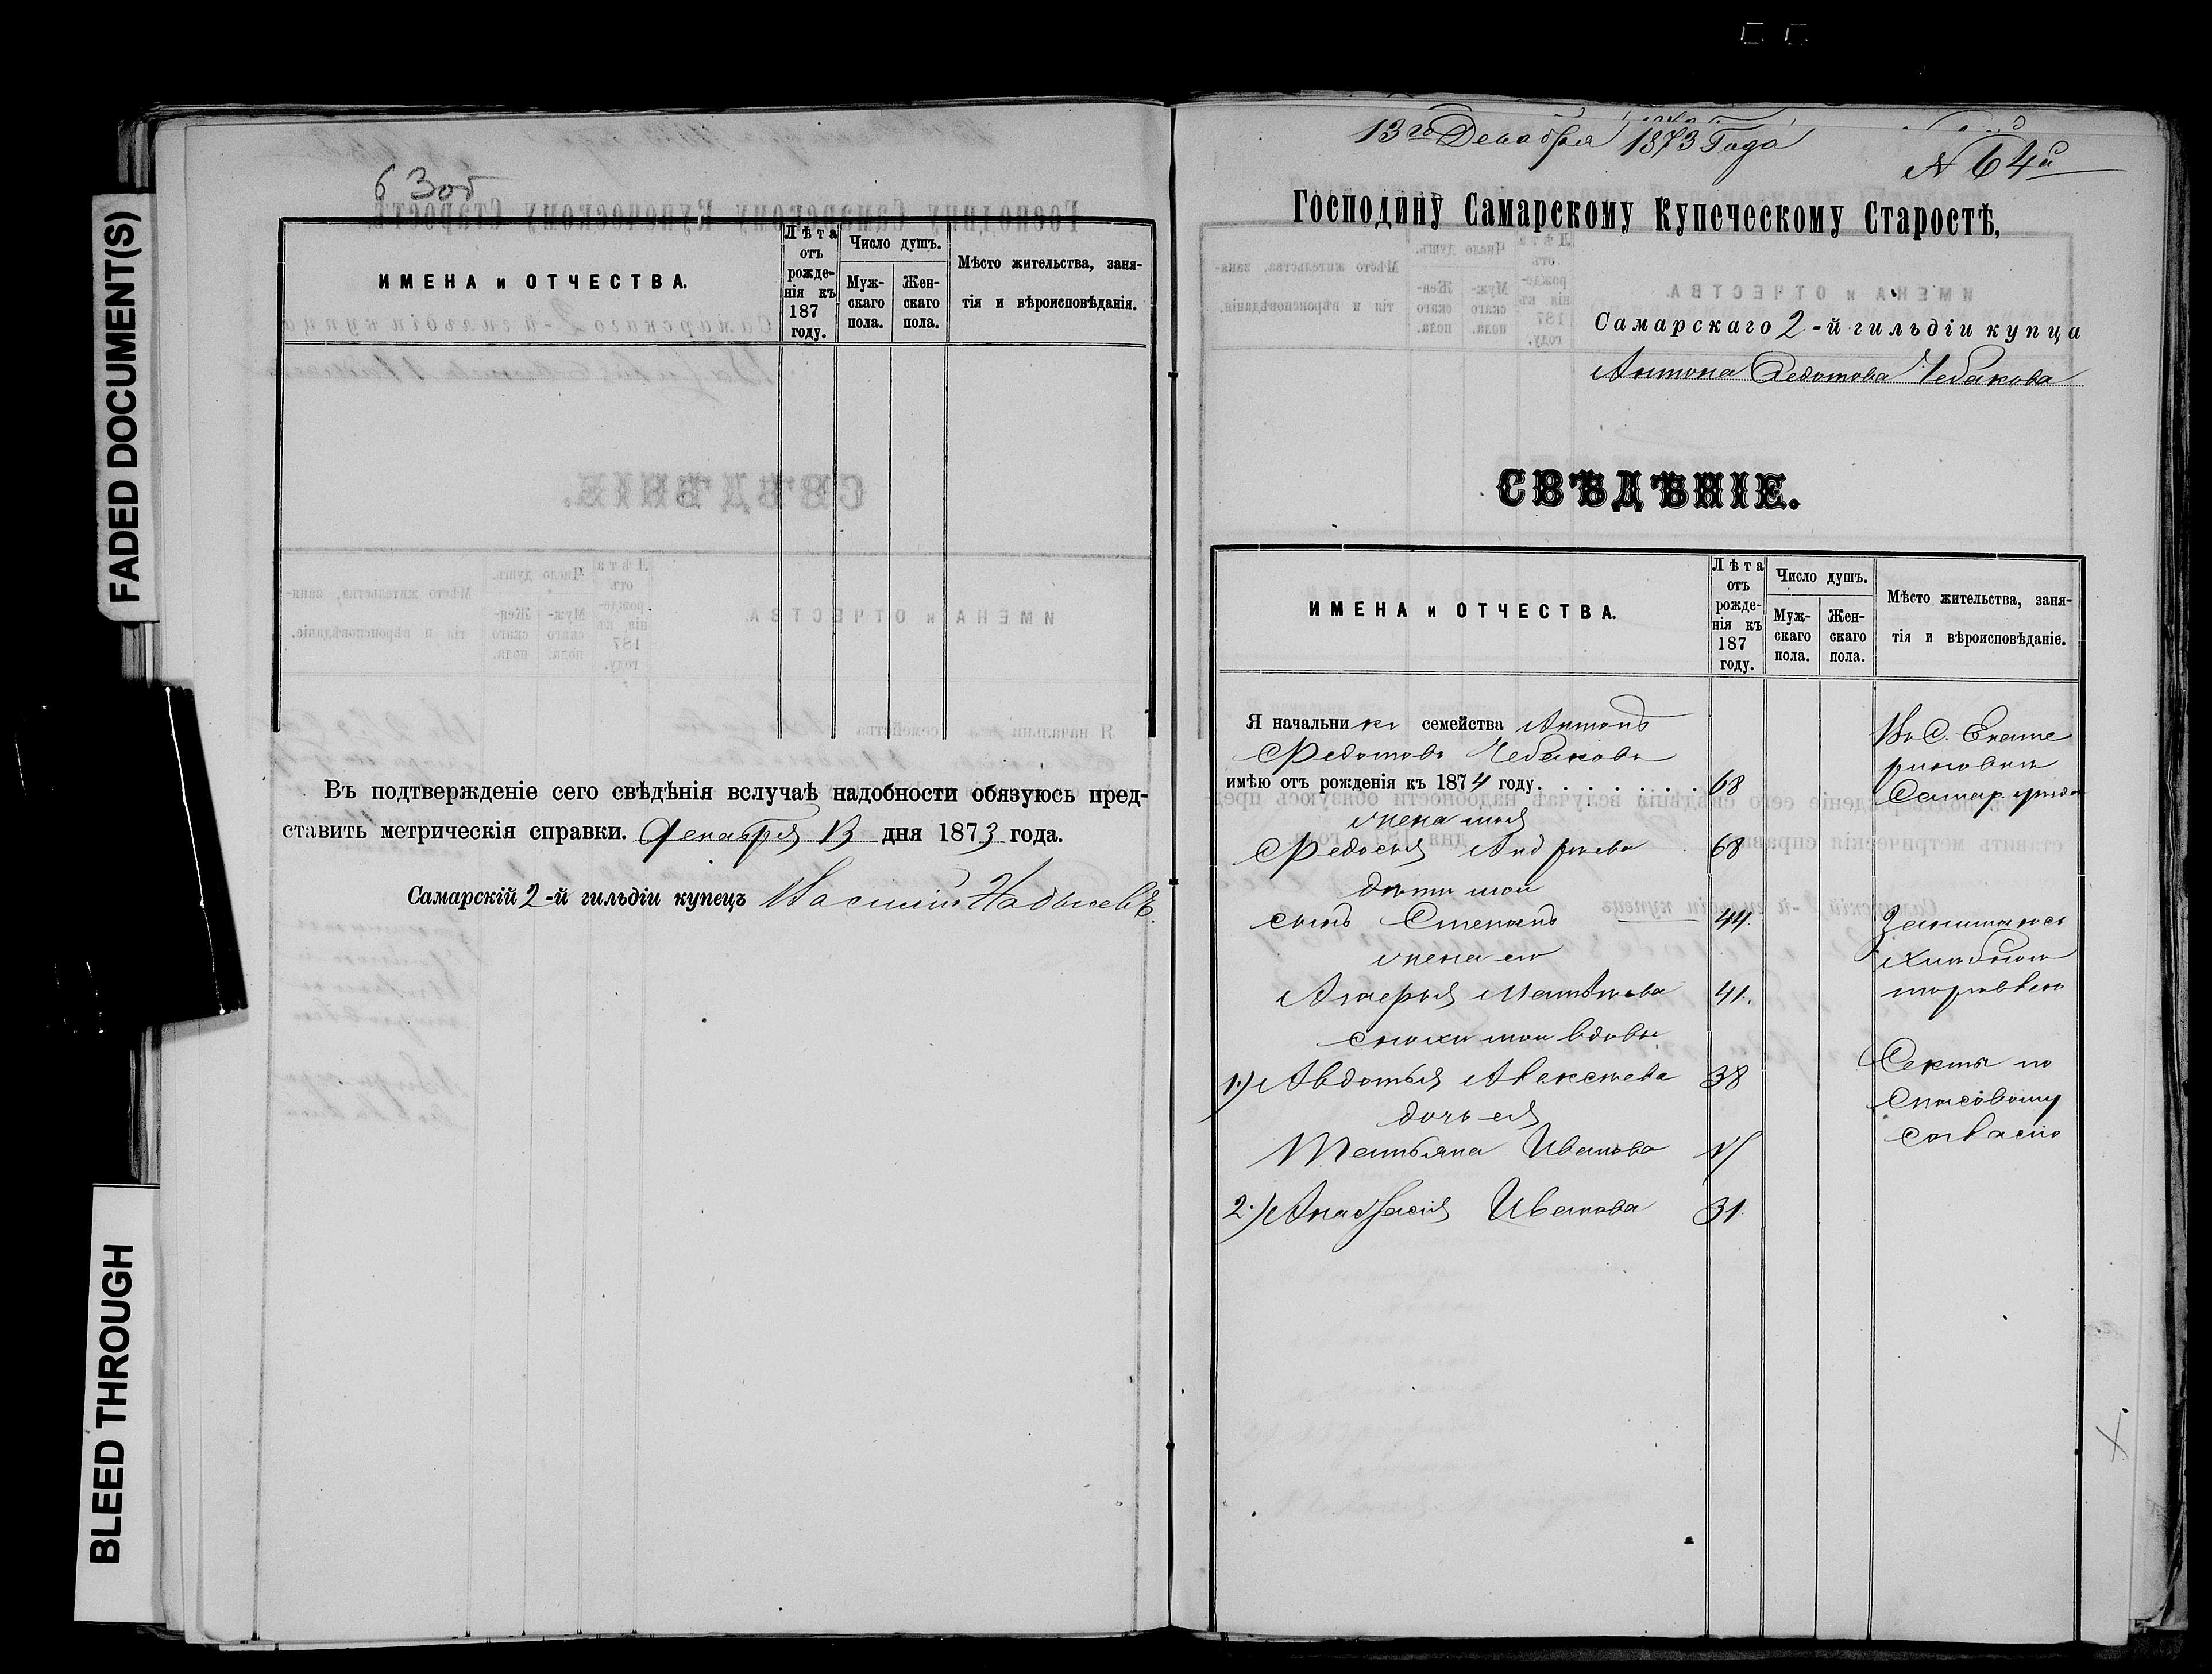 FADED DOCUMENT(S)
BLEED THROUGH
63об
ИМЕНА и ОТЧЕСТВА.
Лѣта отъ рожденія къ 187 году.
Число душъ.
Мужскаго пола.
Женскаго пола.
Мѣсто жительства, заня-
тія и вѣроисповѣданія.
Въ подтвержденіе сего свѣдѣнія вслучаѣ надобности обязуюсь пред-
ставить метрическія справки. Декабря 13 дня 1873 года.
Самарскій 2-й гильдіи купецъ Василій
13го Декабря 1873 Года
N 64й
Господину Самарскому Купеческому Старостѣ,
Самарскаго 2-й гильдіи купца
Антона Федотова Чебакова
СВѢДѢНІЕ.
ИМЕНА и ОТЧЕСТВА.
Лѣта отъ рожденія къ 187 году.
Число душъ.
Мужскаго пола.
Женскаго пола.
Мѣсто жительства, заня-
тія и вѣроисповѣданіе.
Я начальникъ семейства Антонъ
Федотовъ Чебаковъ
имѣю отъ рожденія къ 1874 году. . . . . . . . 68
жена моя
Федосья Андреева 68
дѣти мои
сынъ Степанъ 44
жена его
Матвѣева 41.
снохи мои вдовы
1.) Авдотья Алексеева 38
дочь ея
Татьяна Иванова
2.) Анастасія Иванова 31.
Въ С. Екате
риновки
Самар. уезда
Занимаюсь
хлебною
торговлею
Секты по
Спасовому
согласію